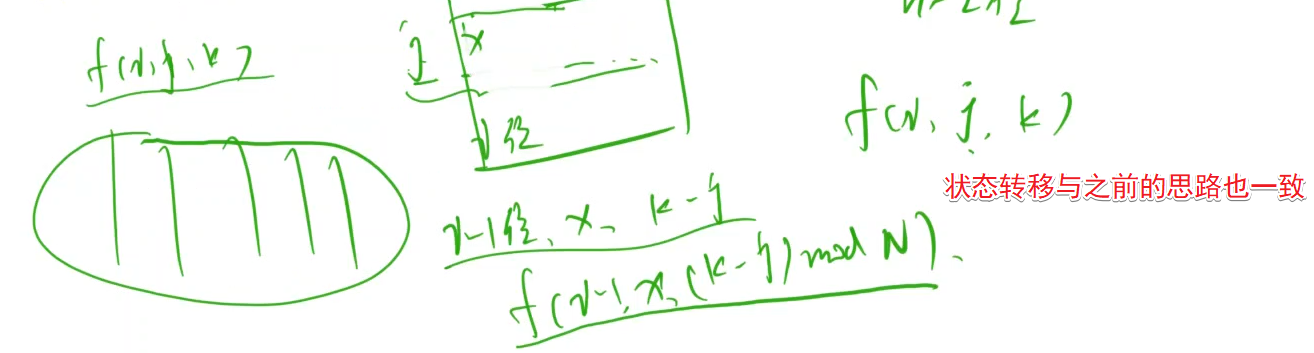 f(i, j, k)
j
x
i位
f(i, j, k)
状态转移与之前的思路也一致
i-1位、x、k-j
f(i-1, x, (k-j) mod N).